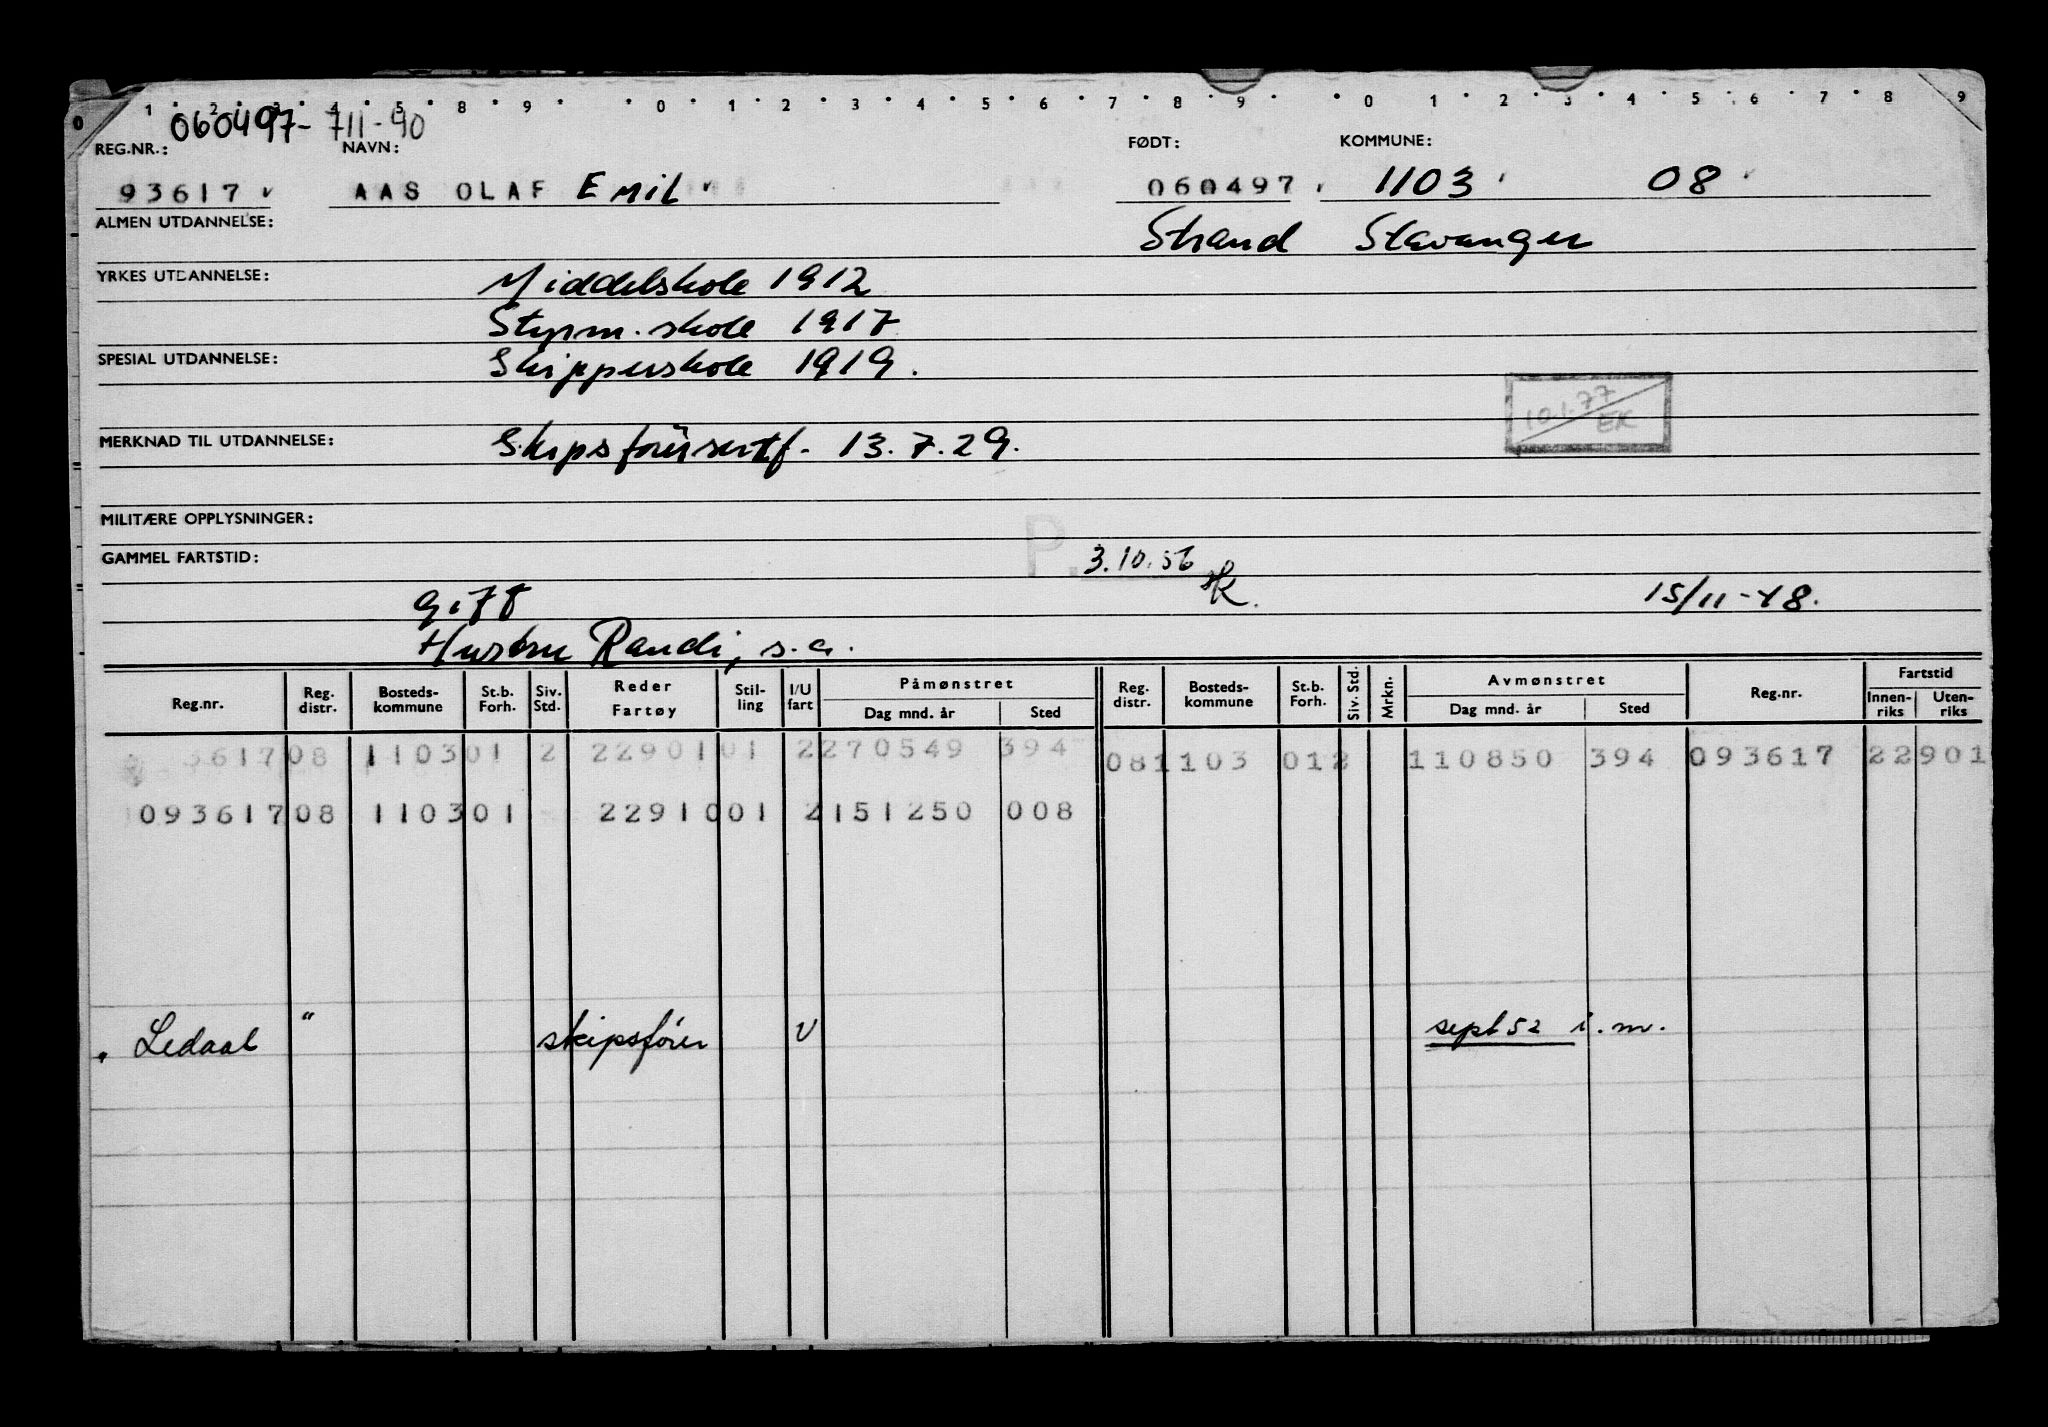 0 1 2 3 4 5 8 9 0 1 2 3 4 5 6 7 8 9 0 1 2 3 4 5 6 7 8 9
060497-711-90
REG.NR.: NAVN: FØDT: KOMMUNE:
93617 AAS OLAF EMIL 060497 1103 08
ALMEN UTDANNELSE: Strand Stavanger
YRKES UTDANNELSE: Middelskole 1912
Styrm. skole 1917
SPESIAL UTDANNELSE: Skipperskole 1919.
10.1.77
EK
MERKNAD TIL UTDANNELSE: Skipsførersertf. 13.7.29.
MILITÆRE OPPLYSNINGER:
GAMMEL FARTSTID: P. 3.10.56
gift 15/11-48.
Hustru Randi, s.a.
Reg.nr. Reg. distr. Bosteds- kommune St.b. Forh. Siv. Std. Reder Fartøy Stil- ling I/U fart Påmønstret Dag mnd. år Sted Reg. distr. Bosteds- kommune St.b. Forh. Siv. Std. Mrkn. Avmønstret Dag mnd. år Sted Reg.nr. Fartstid Innen- riks Uten- riks
3617 08 1103 01 2 22901 01 2 270549 394 08 1103 01 2 110850 394 093617 22901
093617 08 1103 01 22910 01 2 151250 008
" Ledaal " skipsfører U sept 52 i.m.